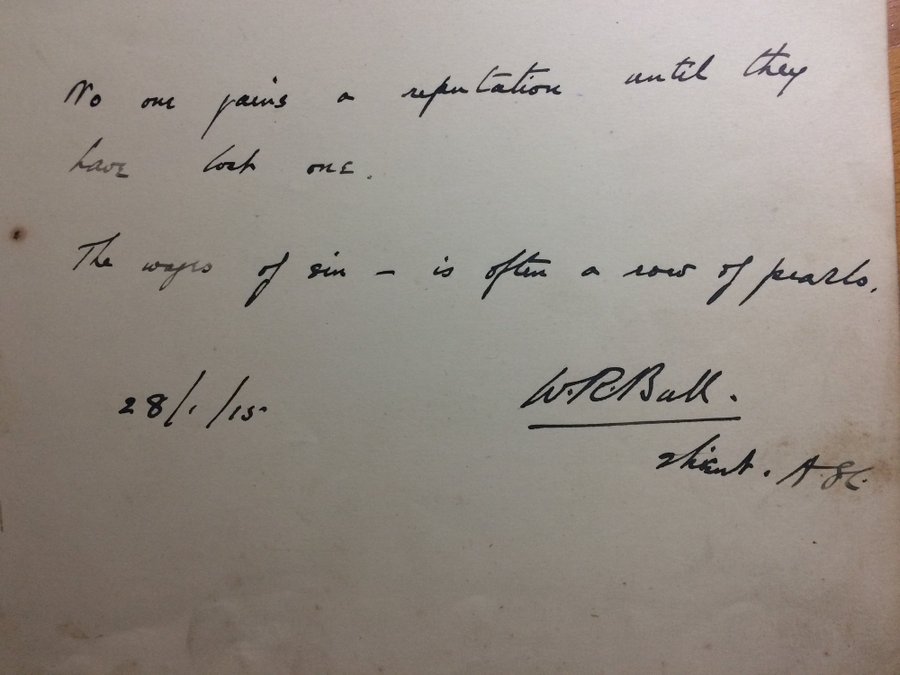 No one gains a reputation until they
have lost one.
The wages of sin – is often a row of pearls.
28/1/15
W.R. Ball.
2/Lieut. A.S.C.